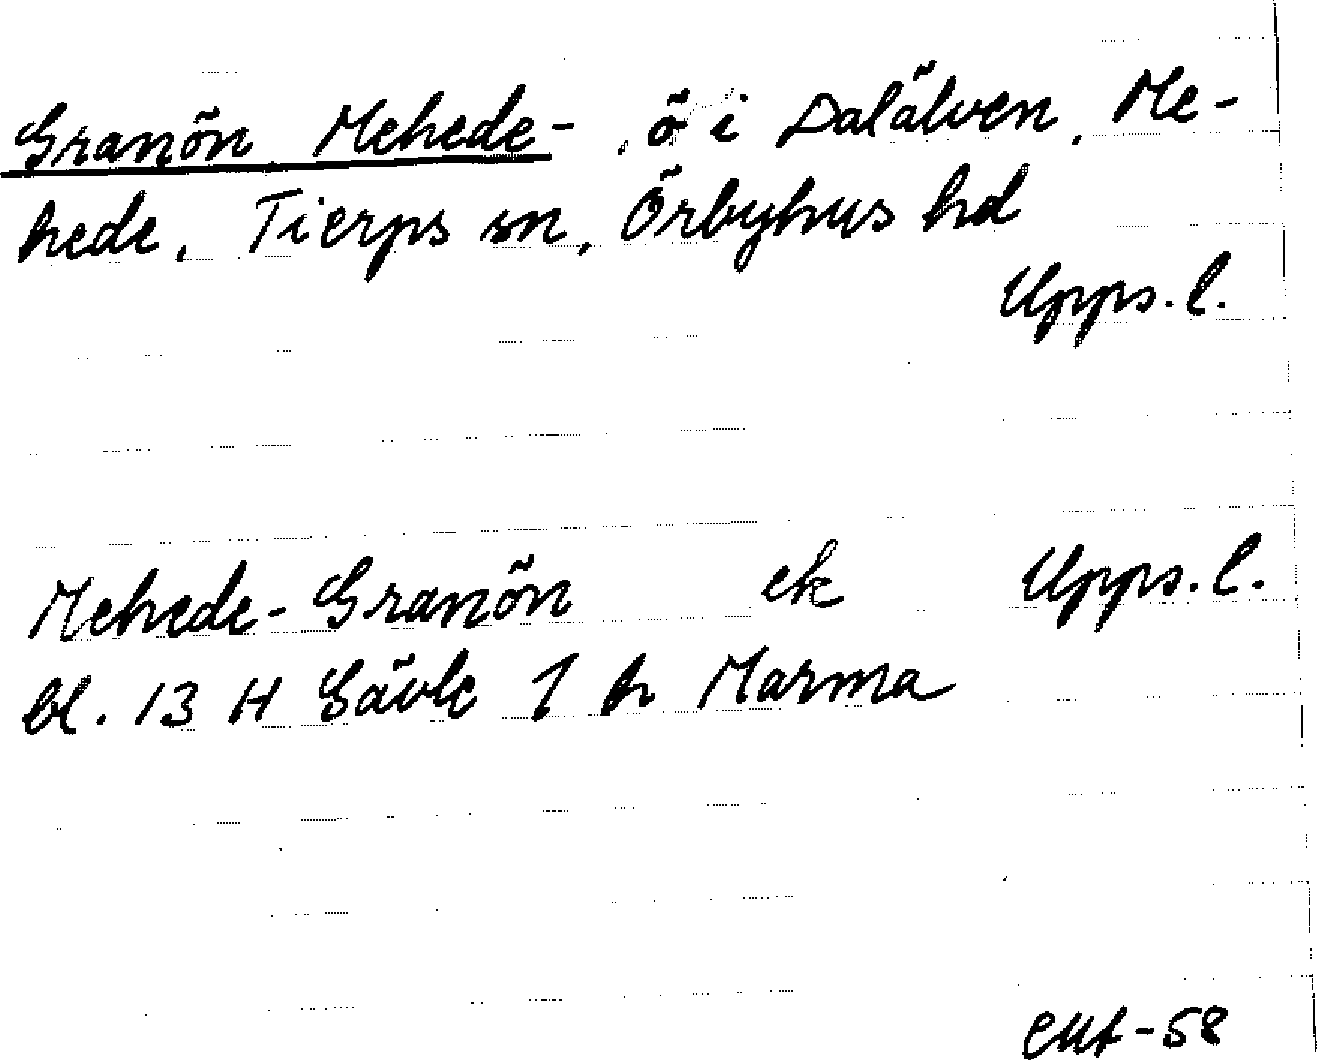 Granön, Mehede-, ö i Dalälven, Me-
hede, Tierps sn, Örbyhus hd
Upps. l.
Mehede-Granön ek Upps. l.
bl. 13 H Gävle 1 h Marma
-58